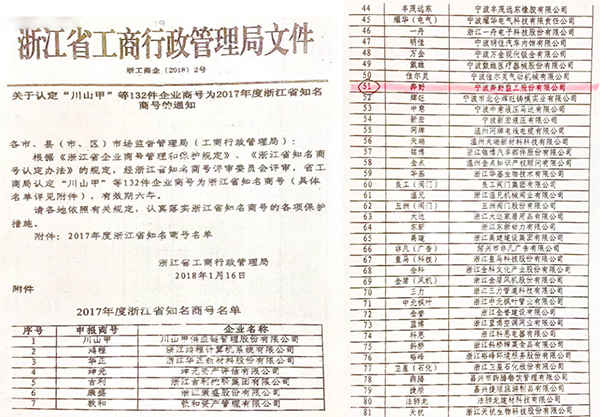 浙江省工商行政管理局文件
浙工商企〔2018〕2号
关于认定“川山甲”等132件企业商号为2017年度浙江省知名
商号的通知
各市、县（市、区）市场监督管理局（工商行政管理局）：
根据《浙江省企业商号管理和保护规定》、《浙江省知名商
号认定办法》的规定，经浙江省知名商号评审委员会评审，省工
商局认定“川山甲”等132件企业商号为浙江省知名商号（具体
名单详见附件），有效期六年。
请各地依照有关规定，认真落实浙江省知名商号的各项保护
措施。
附件：2017年度浙江省知名商号名单
浙江省工商行政管理局
2018年1月16日
附件
2017年度浙江省知名商号名单
序号 申报商号 企业名称
1 川山甲 川山甲供应链管理股份有限公司
2 鸿程 浙江鸿程计算机系统有限公司
3 华正 浙江华正新材料股份有限公司
4 坤元 坤元资产评估有限公司
5 吉利 浙江吉利控股集团有限公司
6 康盛 浙江康盛股份有限公司
7 敦和 敦和资产管理有限公司
44 丰茂远东 宁波丰茂远东橡胶有限公司
45 耀华（电气） 宁波耀华电气科技有限责任公司
46 一舟 浙江一舟电子科技股份有限公司
47 明佳 宁波明佳汽车内饰有限公司
48 万金 宁波万金现代钣金有限公司
49 戴维 宁波戴维医疗器械股份有限公司
50 佳尔灵 宁波佳尔灵气动机械有限公司
51 奔野 宁波奔野重工股份有限公司
52 辉旺 宁波市北仑辉旺铸模实业有限公司
53 中意 宁波中意液压马达有限公司
54 新宏 宁波新宏液压有限公司
55 网牌 温州网牌电线电缆有限公司
56 天瑞
57 铭博 浙江铭博汽车部件股份有限公司
58 金点 温州金点知识产权顾问有限公司
59 华基 浙江华基生物技术有限公司
60 良工（阀门） 良工阀门集团有限公司
61 温兄 浙江温兄机械阀业有限公司
62 五洲（阀门） 五洲阀门股份有限公司
63 大达 浙江大达家居用品有限公司
64 东新 浙江东新动力有限公司
65
66 非凡（广告） 绍兴市非凡广告有限公司
67 皇马（科技） 浙江皇马科技股份有限公司
68 金科 浙江金科文化产业股份有限公司
69 金盾（风机） 浙江金盾风机股份有限公司
70 三力
71 中元枫叶 浙江中元枫叶管业有限公司
72
73 蓝博 浙江蓝博空调冷业有限公司
74 科恩 浙江科恩实验设备有限公司
75 科桥
76 裕峰
77 卫星（石化） 浙江卫星石化股份有限公司
78
79
80
81 天枕